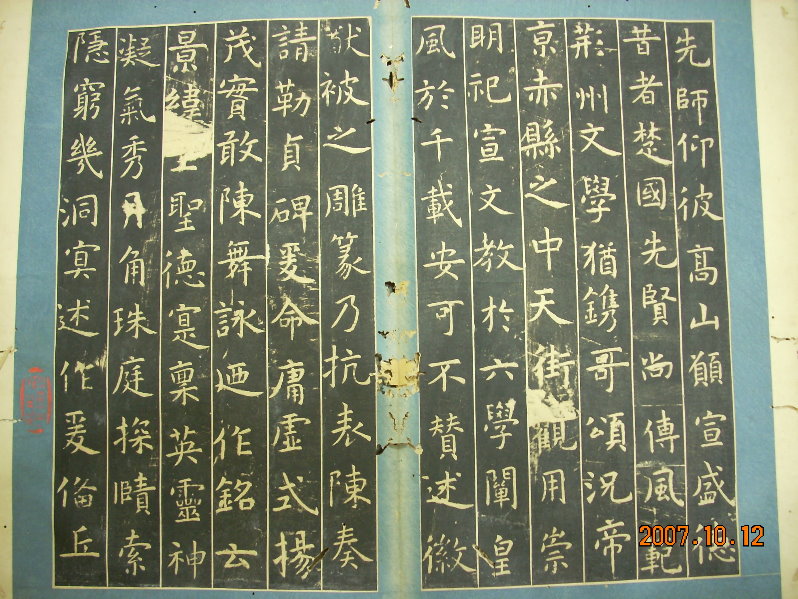 先師仰彼高山願宣盛德
昔者楚國先賢尚傳風範
荊州文學猶鐫哥頌況帝
京赤縣之中天街觀用崇
明祀宣文教於六學闡皇
風於千載安可不贊述徽
猷被之雕篆乃抗表陳奏
請勒貞碑爰命庸虛式揚
茂實敢陳舞詠迺作銘云
景緯上聖德寔稟英靈神
凝氣秀月角珠庭探賾索
隱窮幾洞冥述作爰備丘
2007.10.12